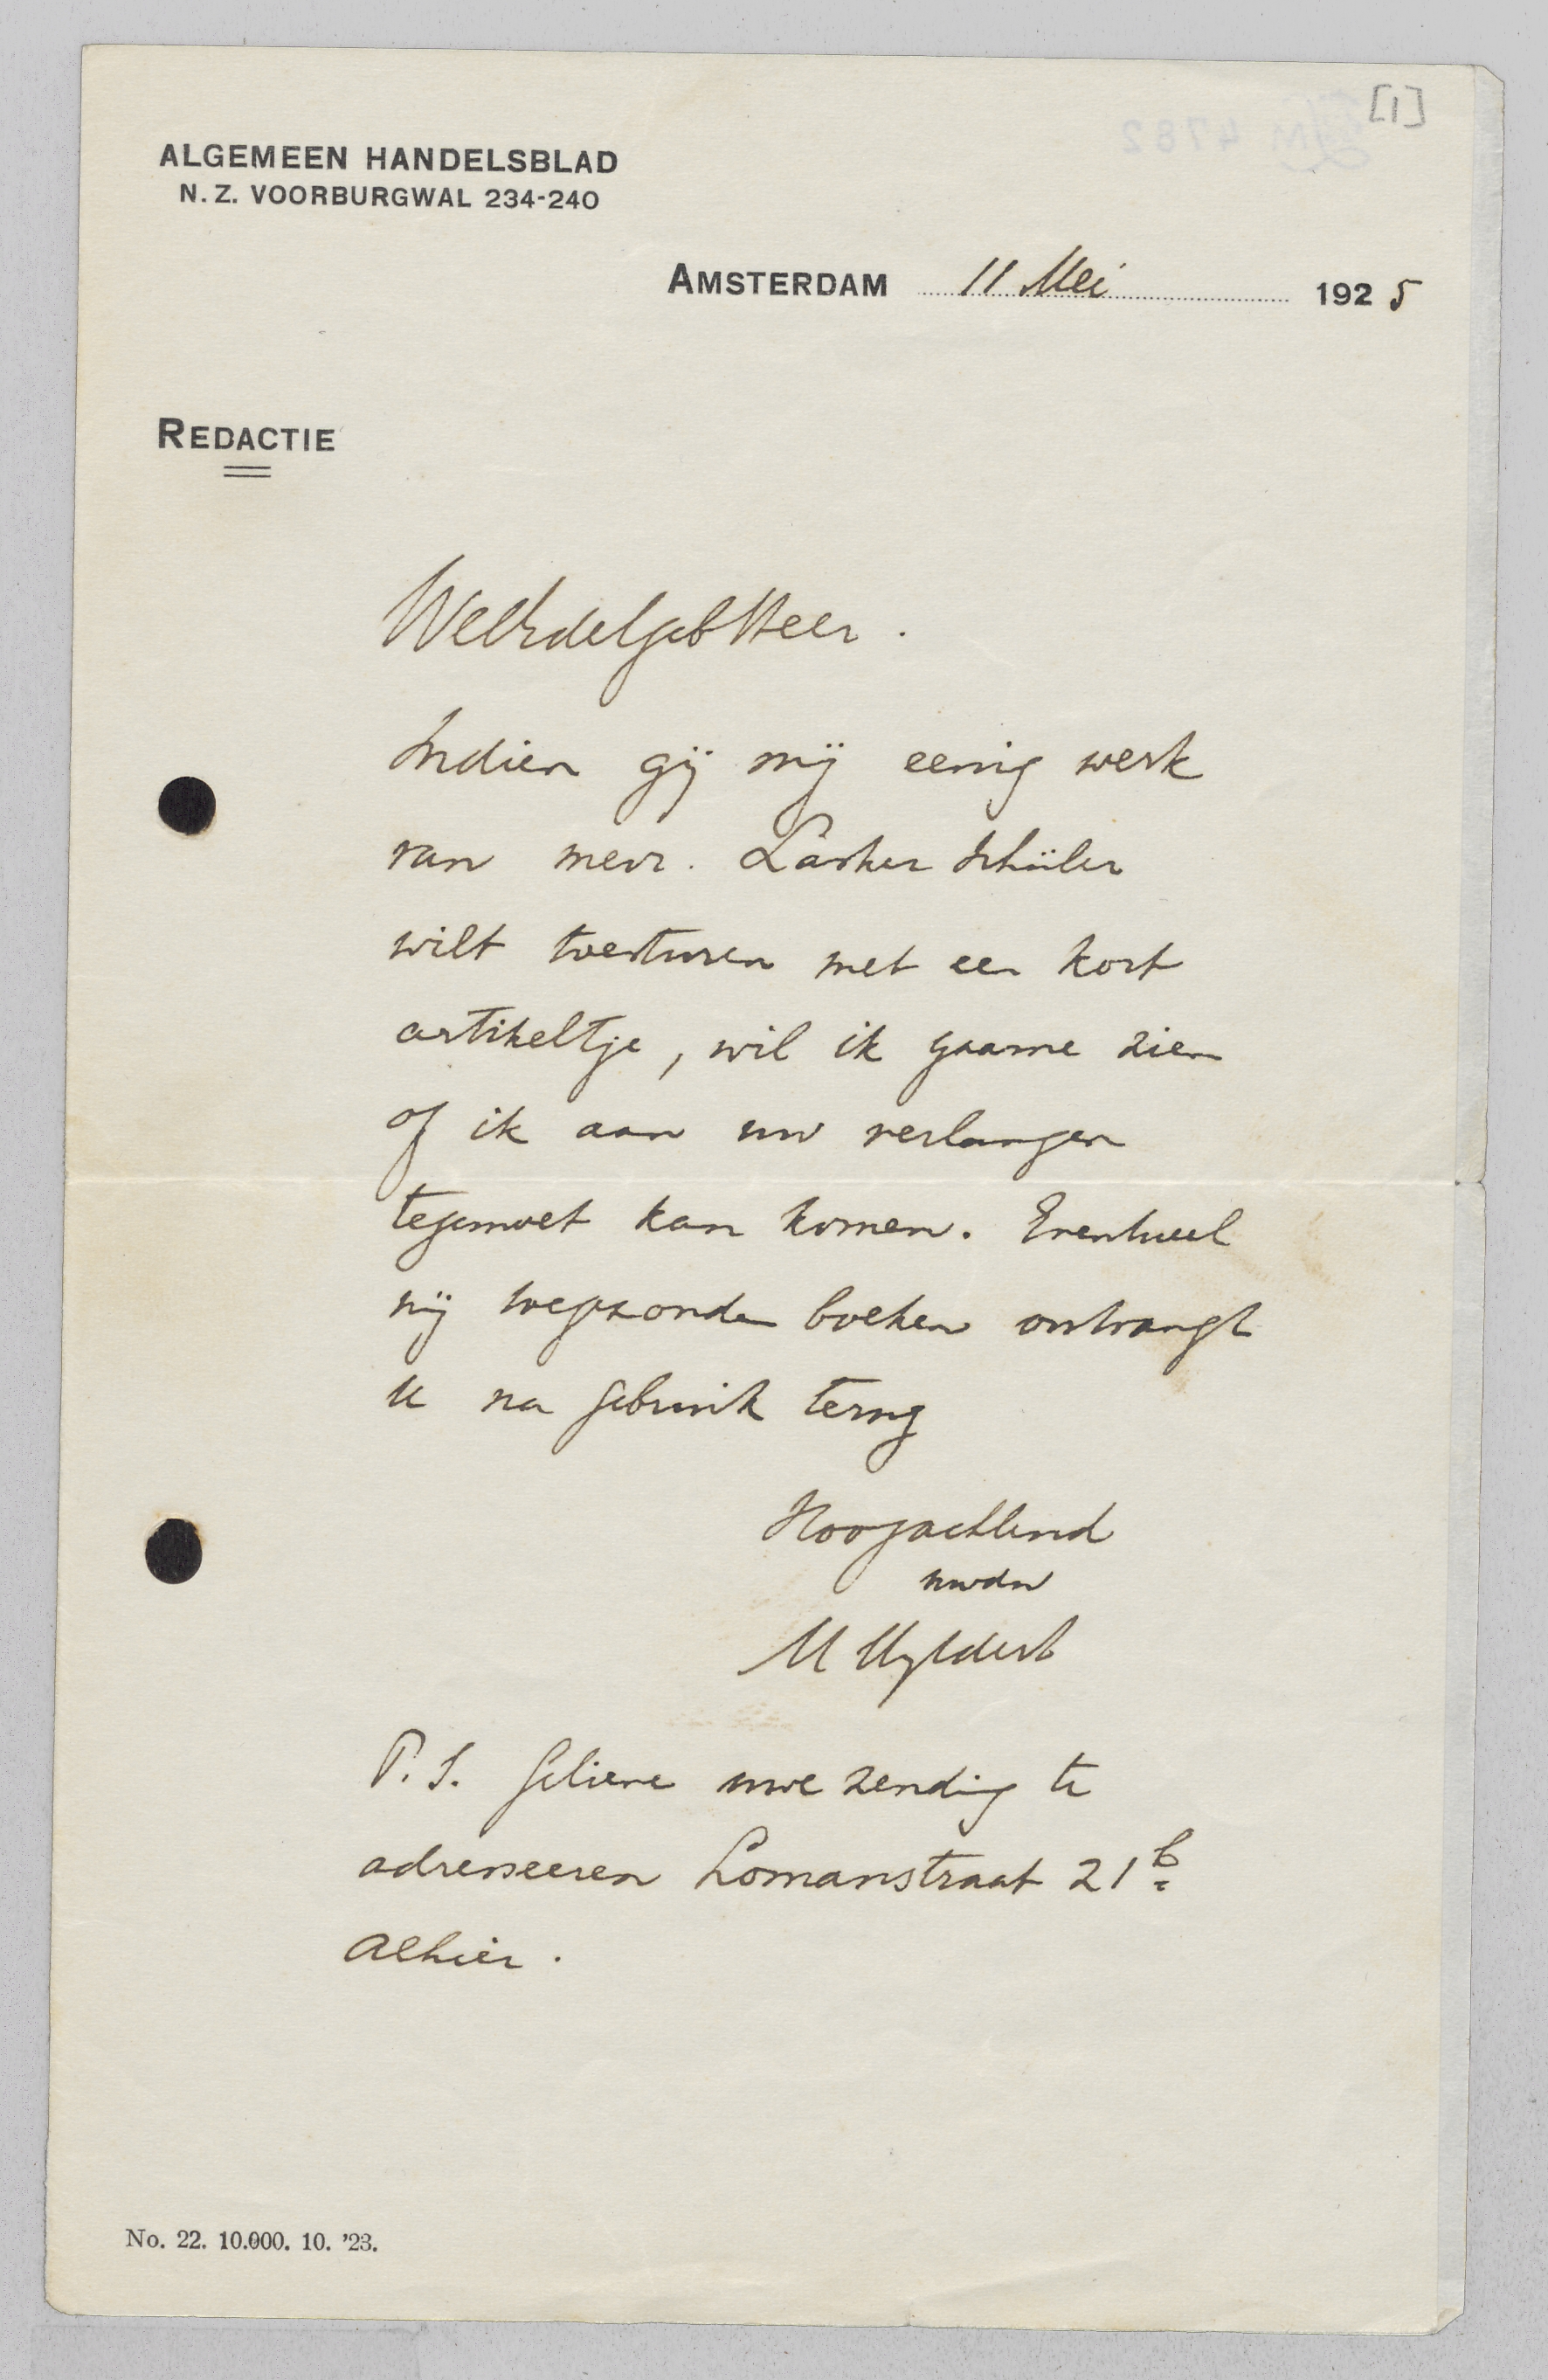 [1]
ALGEMEEN HANDELSBLAD
N. Z. VOORBURGWAL 234-240
AMSTERDAM 11 Mei 1925
REDACTIE
WelEdelGeb Heer.
Indien gij mij eenig werk
van mevr. Lasker Schüler
wilt toesturen met een kort
artikeltje, wil ik gaarne zien
of ik aan uw verlangen
tegemoet kan komen. Eventueel
mij toegezonden boeken ontvangt
U na gebruik terug
Hoogachtend
uwdw
M Uyldert
P.S. Gelieve uwe zending te
adresseeren Lomanstraat 21b
Alhier.
No. 22. 10.000. 10. '23.